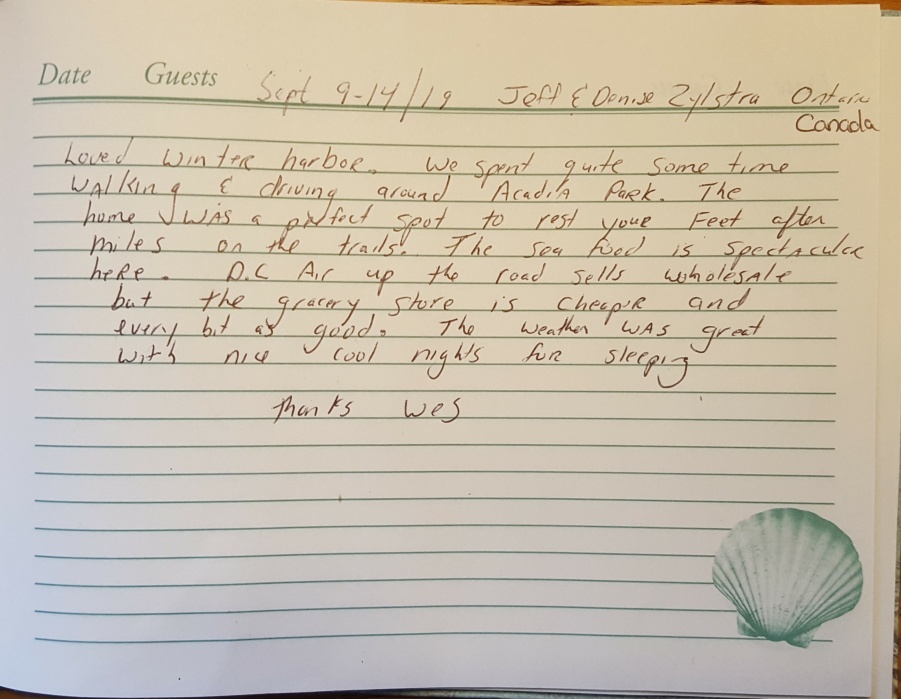 Date Guests Sept 9-14/19 Jeff & Denise Zylstra Ontario
Canada
Loved Winter harbor. We spent quite some time
walking & driving around Acadia Park. The
home was a perfect spot to rest your Feet after
miles on the trails. The sea food is spectacular
here. D.C Air up the road sells wholesale
but the gracery store is cheaper and
every bit as good. The weather was great
with nice cool nights for sleeping
Thanks Wes